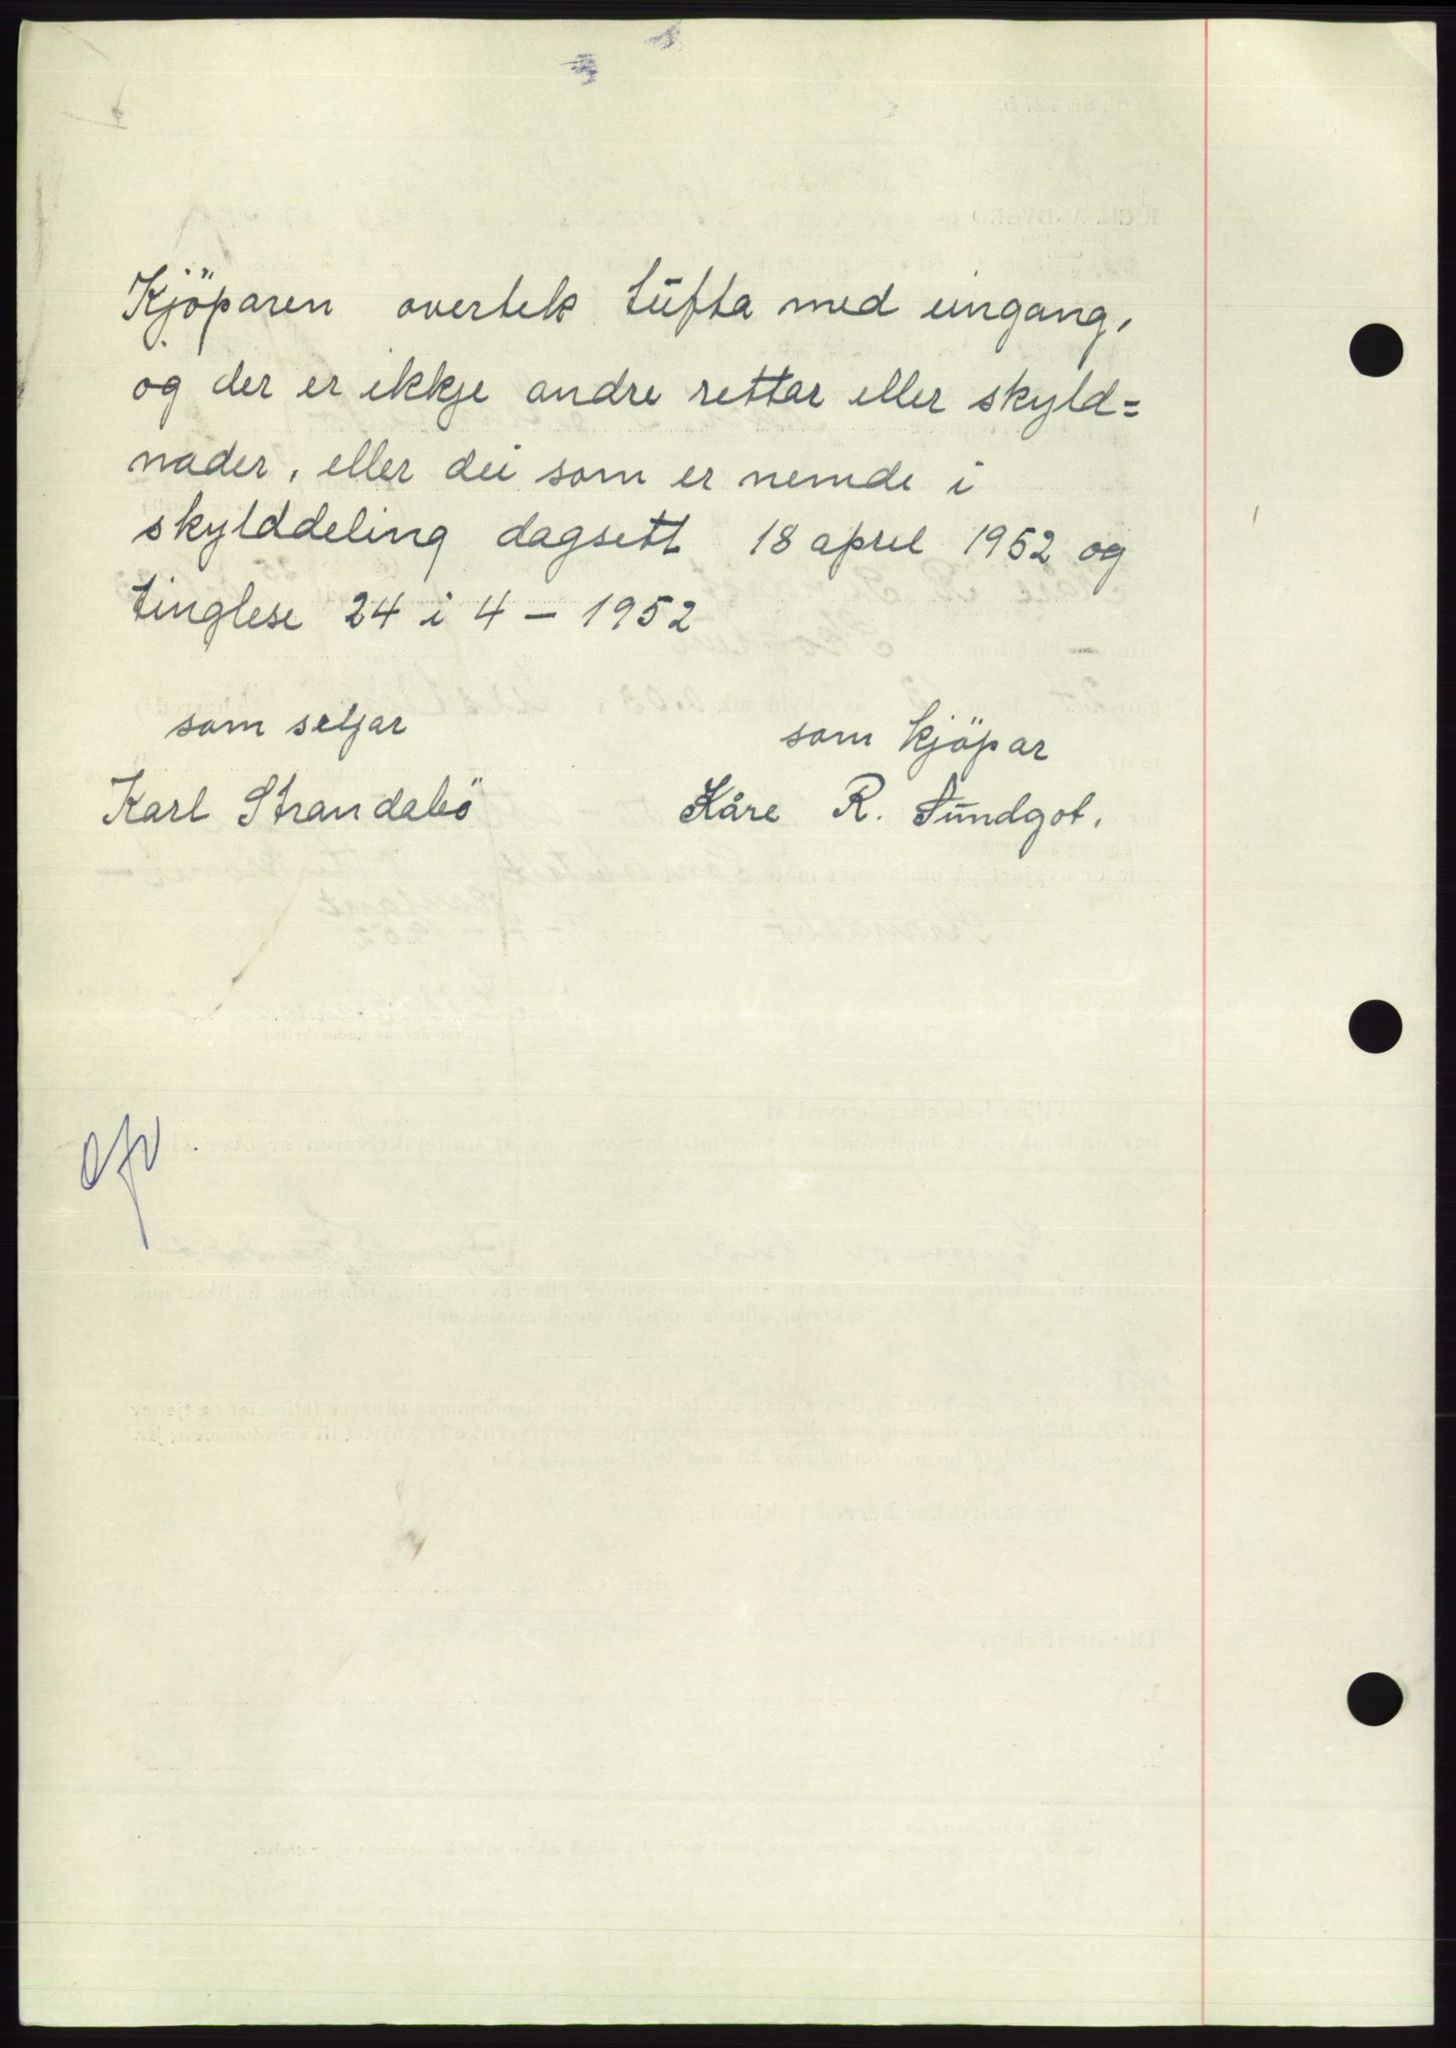 Kjöparen overtek tufta med eingang,
og der er ikkje andre rettar eller skyld=
nader, eller dei som er nemde i
skylddeling dagsett 18 april 1952 og
tinglese 24 i 4 - 1952
som seljar
som kjöpar
Karl Strandabö
Kåre R. Sundgot.